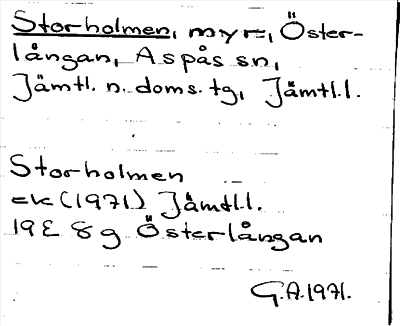 Storholmen, myr, Öster-
långan, Aspås sn,
Jämtl. n. doms. tg, Jämtl.l.
Storholmen
ek (1971) Jämtl.l.
19E 8g Österlångan
G.A. 1971.